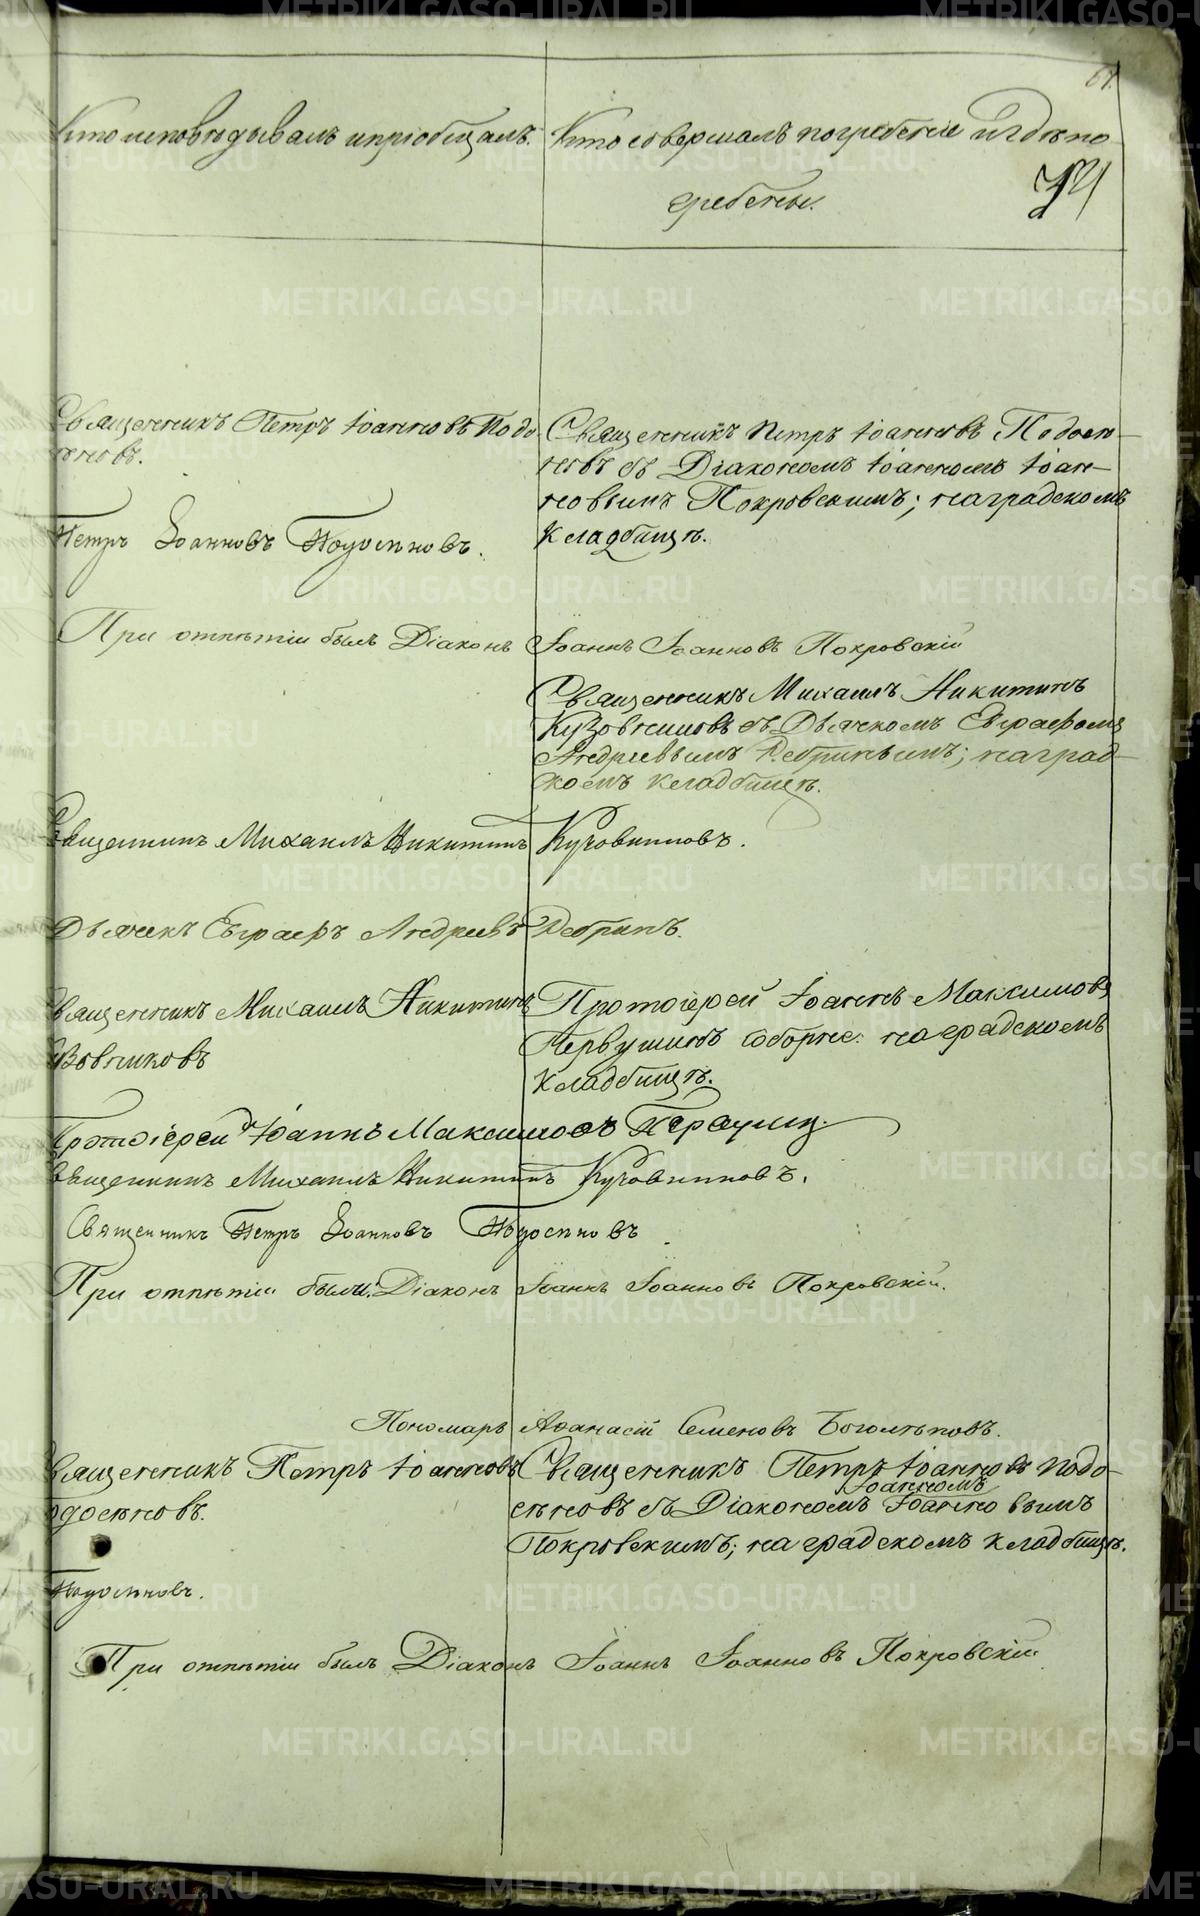 61.
Кто исповѣдывалъ и пріобщалъ. Кто совершалъ погребеніе и гдѣ по-
гребены.
Священникъ Петръ Іоанновъ Подо
Священникъ Петръ Іоанновъ Подосѣ-
новъ съ Діакономъ Іоанномъ Іоан-
новымъ Покровскимъ; на градскомъ
кладбищѣ.
Петръ Іоанновъ Подосѣновъ.
При отпѣтіи былъ Діаконъ Іоаннъ Іоанновъ Покровскій
Священникъ Михаилъ Никитинъ
Кузовниковъ съ Дьячкомъ Евграфомъ
Андреевымъ Ребринымъ; на град-
скомъ кладбищѣ.
Священникъ Михаилъ Никитинъ Кузовниковъ.
Дьячекъ Евграфъ Андреевъ Ребринъ.
Священникъ Михаилъ Никитинъ
Кузовниковъ
Протоіерей Іоаннъ Максимовъ
Первушинъ соборне: на градскомъ
кладбищѣ.
Протоіерей Іоаннъ Максимовъ Первушинъ.
Священникъ Михаилъ Никитинъ Кузовниковъ.
Священникъ Петръ Іоанновъ Подосѣновъ.
При отпѣтіи были: Діаконъ Іоаннъ Іоанновъ Покровскій.
Пономарь Аѳанасій Семеновъ Боголѣповъ.
Священникъ Петръ Іоанновъ
одосѣновъ.
Священникъ Петръ Іоанновъ Подо-
сѣновъ съ Діакономъ Іоанномъ Іоанновымъ
Покровскимъ; на градскомъ кладбищѣ.
Подосѣновъ.
При отпѣтіи былъ Діаконъ Іоаннъ Іоанновъ Покровскій
METRIKI.GASO-URAL.RU